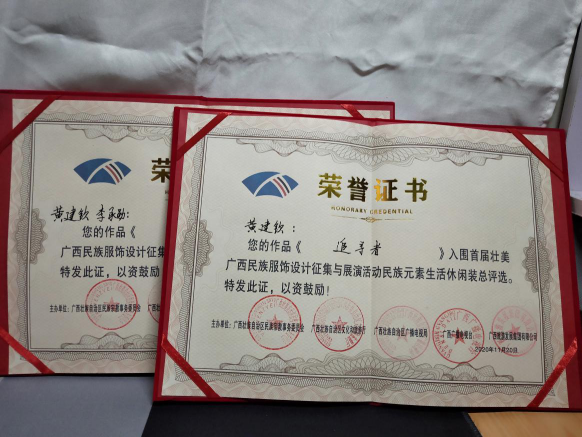 荣
黄建钦 李承勋:
您的作品《
广西民族服饰设计征集
特发此证，以资鼓励
主办单位：广西壮族自治区民族宗教事务委员会
荣誉证书
HONORARY CREDENTIAL
黄建钦：
您的作品《 追寻者 》入围首届壮美
广西民族服饰设计征集与展演活动民族元素生活休闲装总评选。
特发此证，以资鼓励！
主办单位：广西壮族自治区民族宗教事务委员会 广西壮族自治区文化和旅游厅 广西壮族自治区广播电视局 广西广播电视台
2020年11月20日